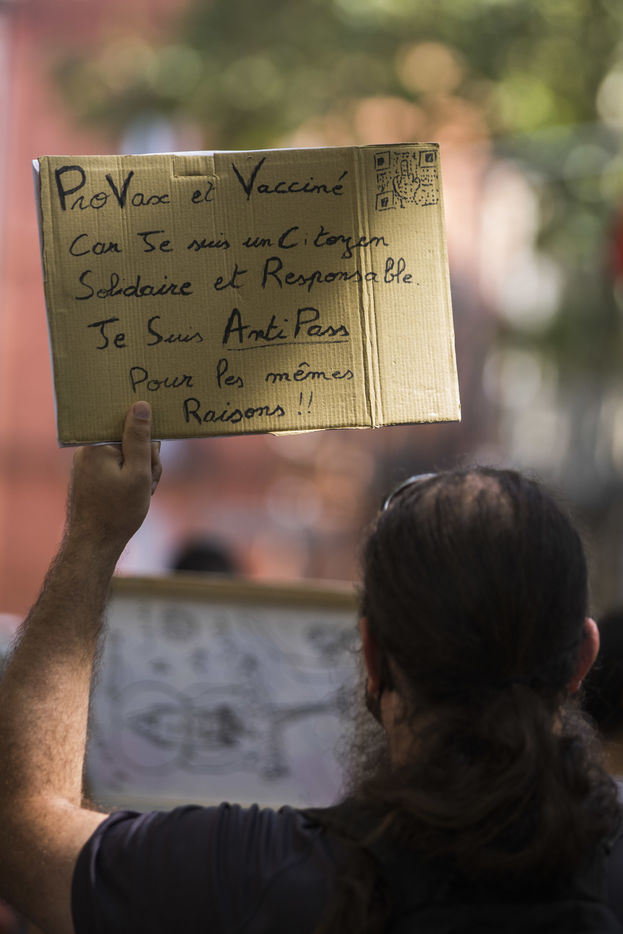 ProVax et Vacciné
Car Je suis un Citoyen
Solidaire et Responsable.
Je Suis AntiPass
Pour les mêmes
Raisons !!